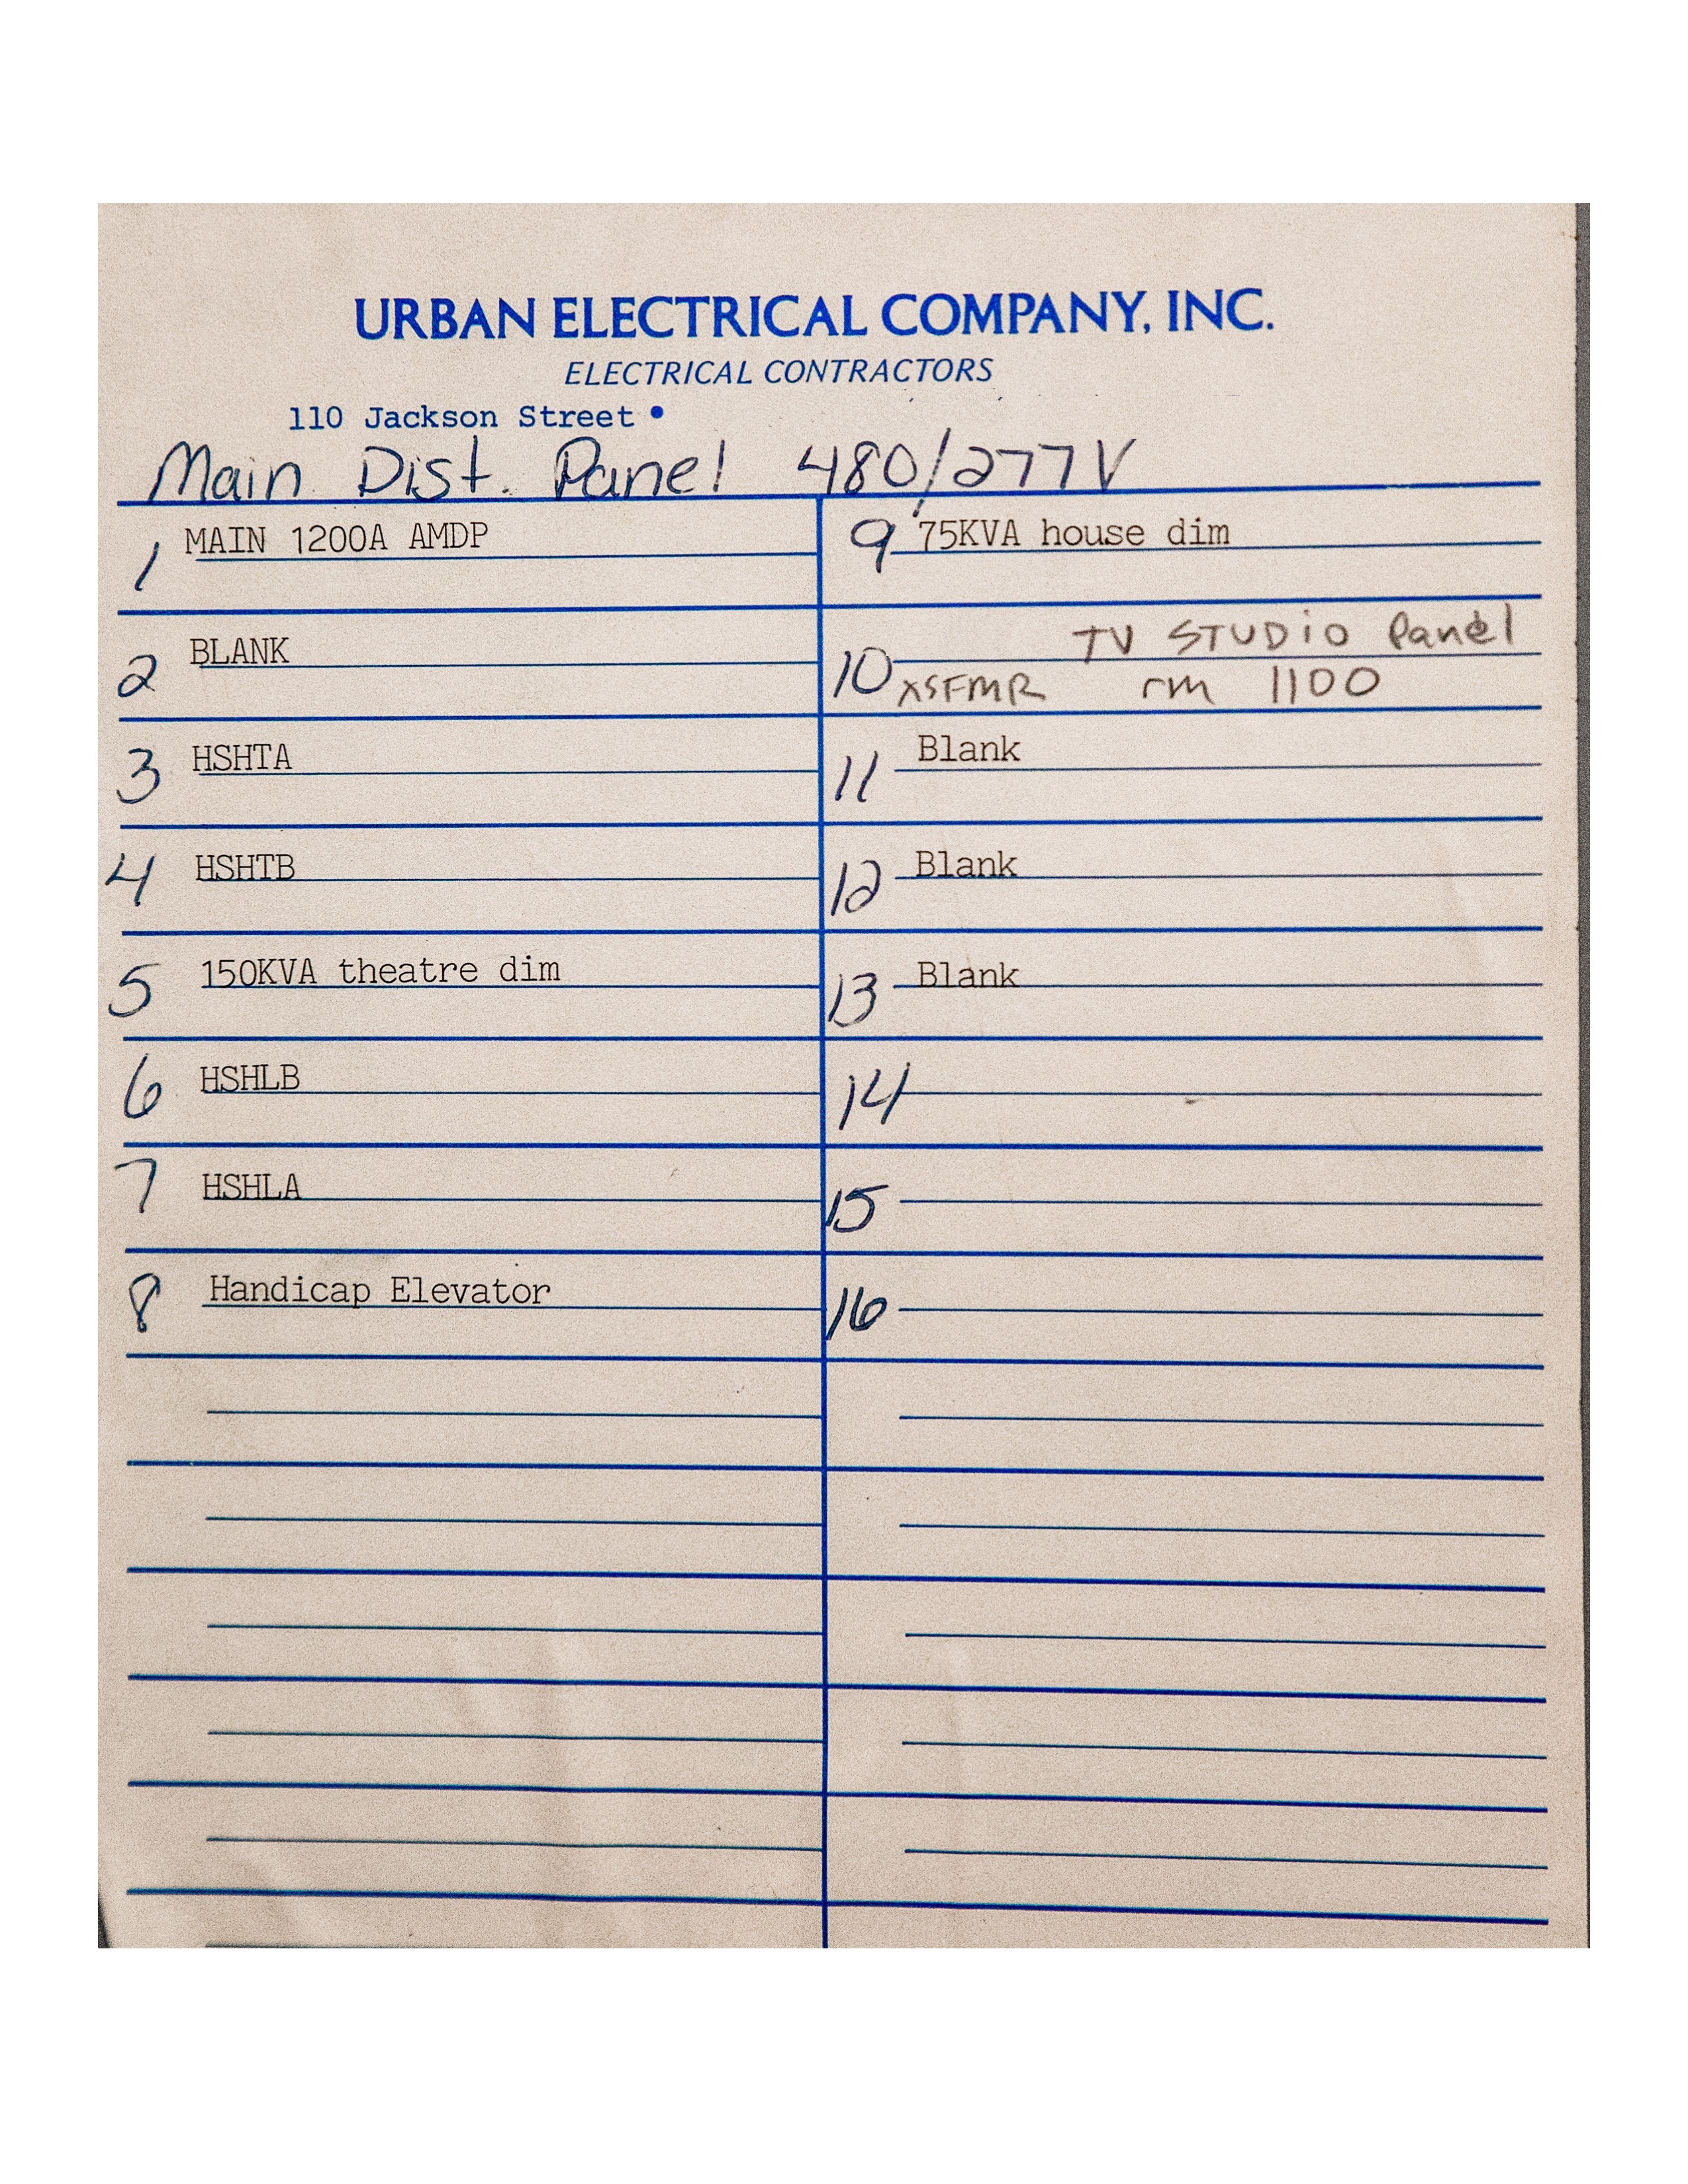 URBAN ELECTRICAL COMPANY, INC.
ELECTRICAL CONTRACTORS
110 Jackson Street •
Main Dist. Panel 480/277V
1 MAIN 1200A AMDP
2 BLANK
3 HSHTA
4 HSHTB
5 150KVA theatre dim
6 HSHLB
7 HSHLA
8 Handicap Elevator
9 75KVA house dim
10 TV STUDIO Panel
XSFMR rm 1100
11 Blank
12 Blank
13 Blank
14
15
16